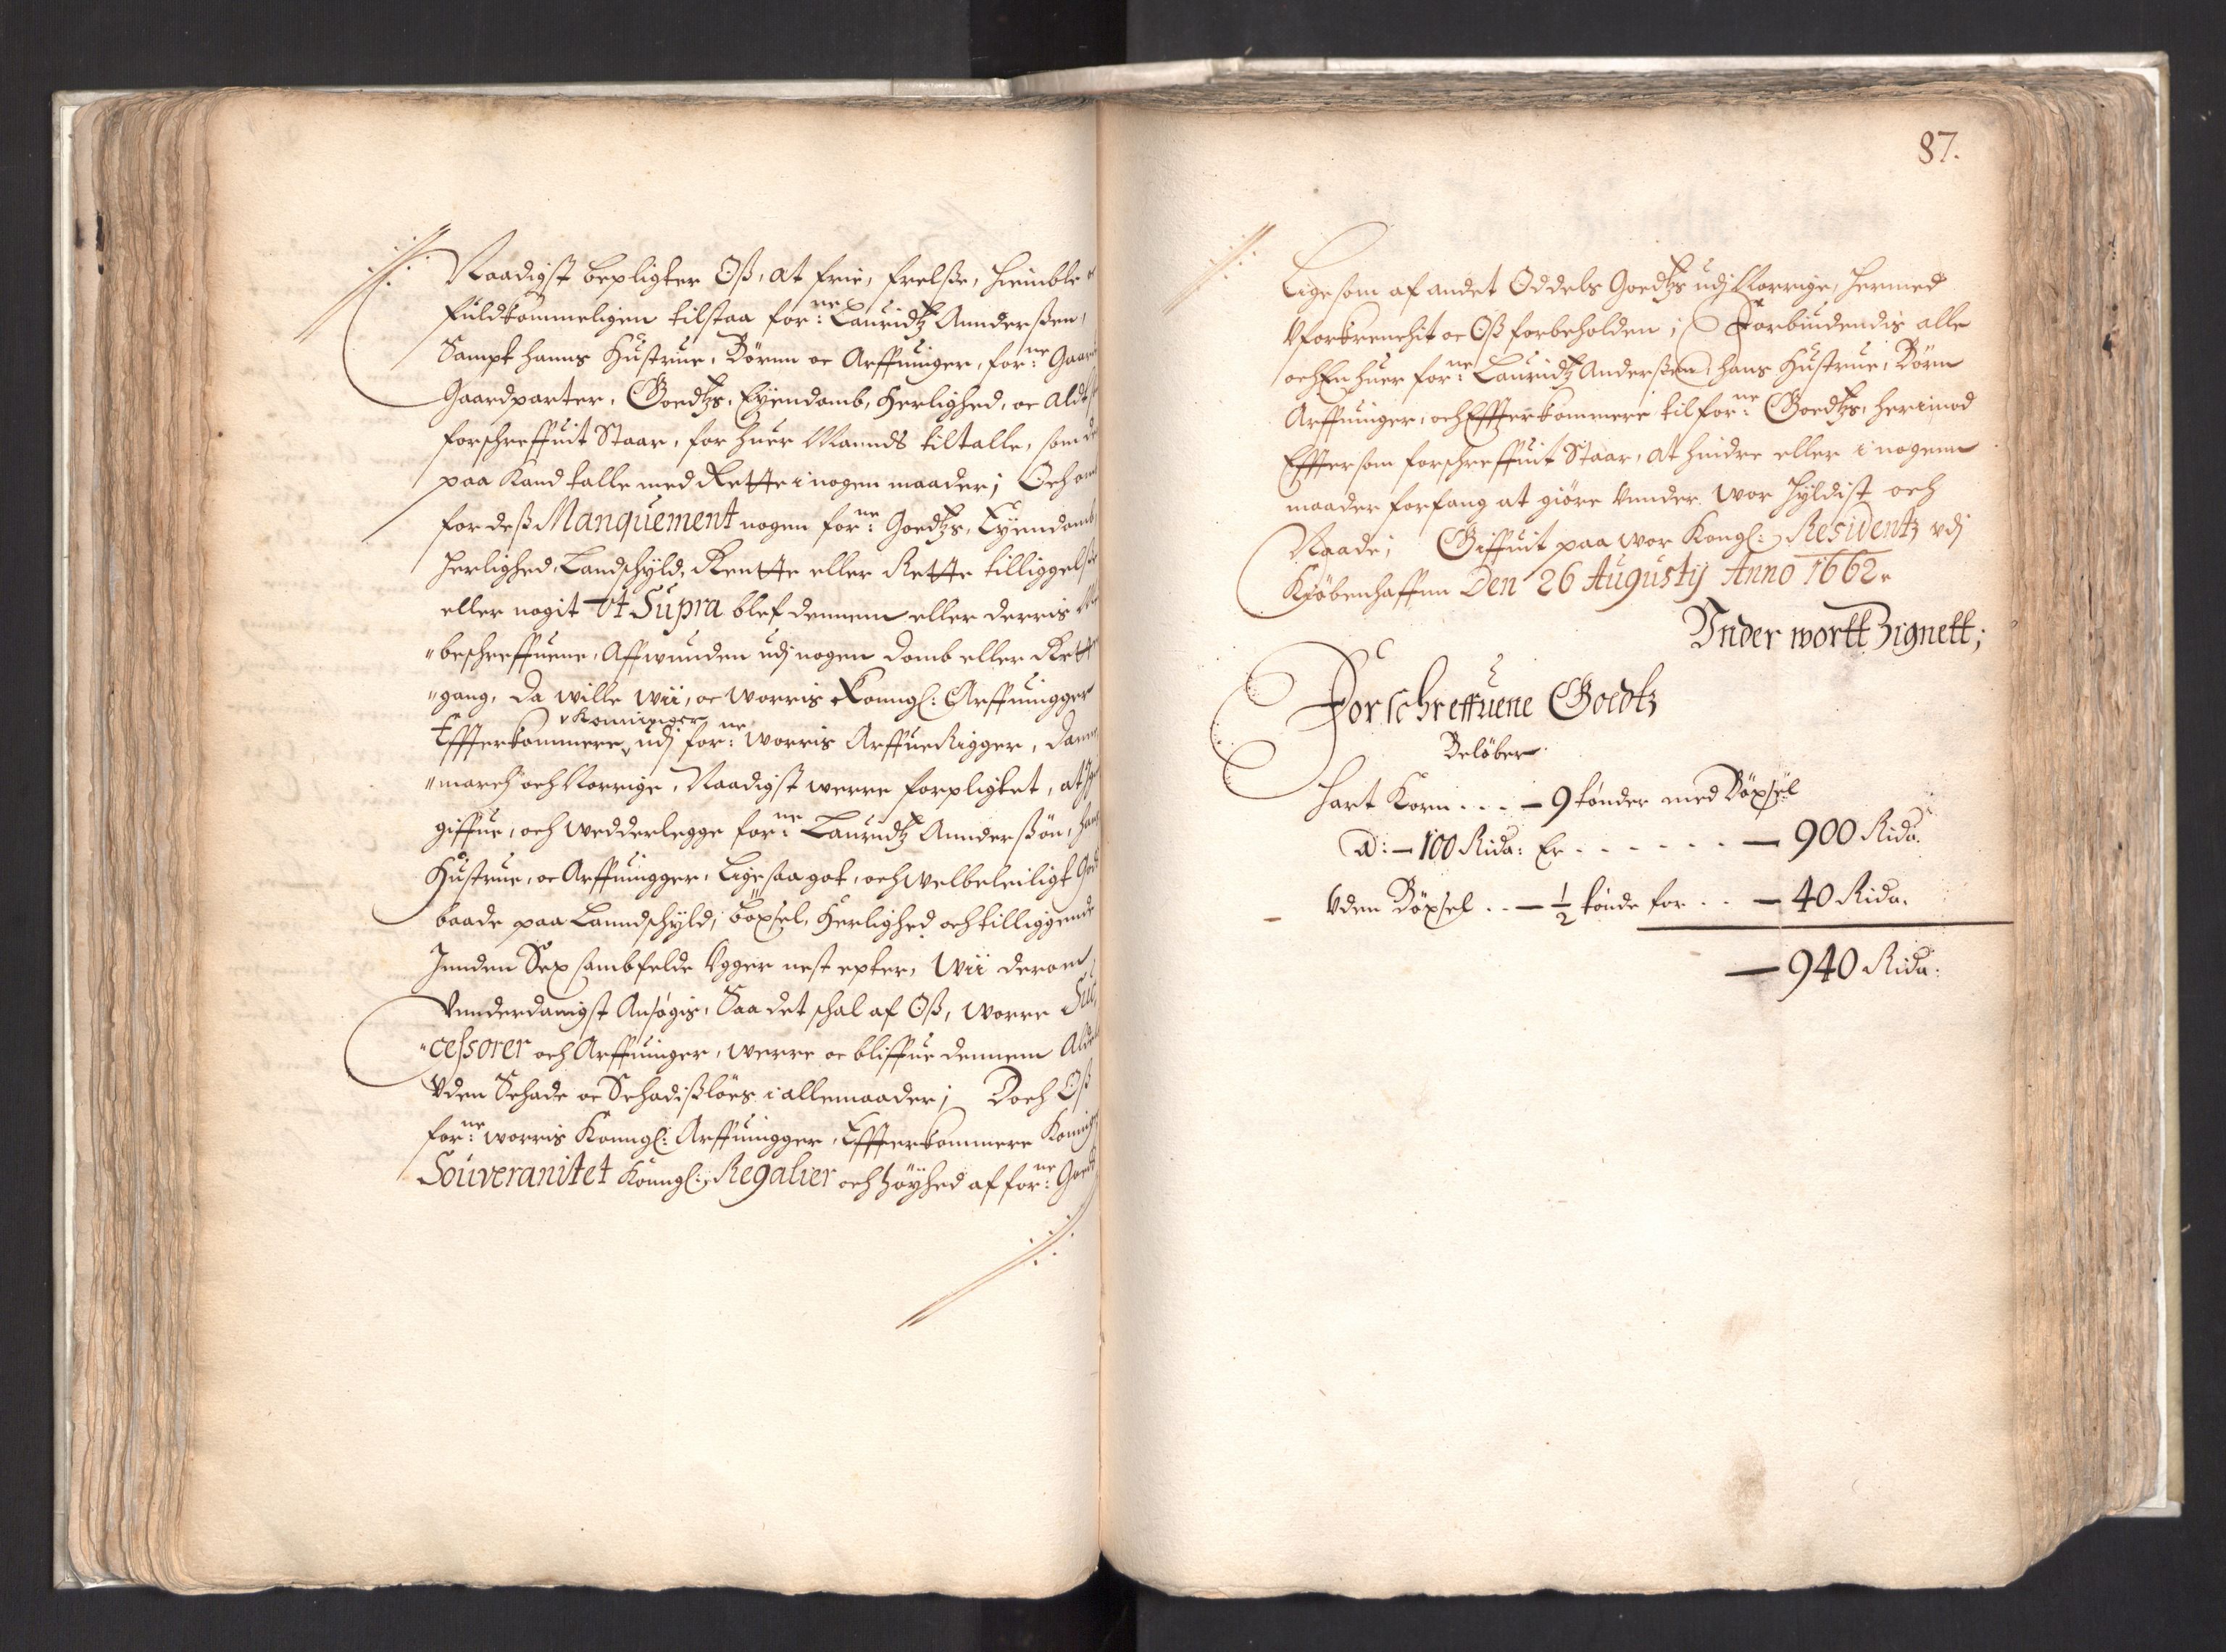 Naadigst bepligter Oß, at frie, frelße, hiemble
fuldkommeligen tilstaa forne: Lauridtz Annderßen,
Sampt hanns Hustrue, Börnn oc Arffuinger, forne: Gaard
Gaardparter, Goedtzs, Eyendomb, Herlighed, oc aldt
forschreffuit Staar, for huer Mannds tiltalle, som
paa kand talle med Rette i nogen maader; Och om
for deß Manquement nogen forne: Goedtzs, Eyendomb,
herlighed, Landschyld, Rentte eller Rette tilliggelße
eller nogit Vt Supra blef dennem eller derris
"beschreffuene, Affwunden udj nogen domb eller Rette
"gang, da wille wii, oc worris Konngl: Arffuingger
Effterkommere udj forne: worris Arffue Rigger, Dann
v Konninger
"march och Norrige, Naadigst werre forpligtet, at
giffue, och wedderlegge forne: Lauridtz Annderßön, hans
Hustrue, oc Arffuingger, Lige saa got, och welbeleiligt
baade paa Lanndschyld, böxsel, Herlighed och tilliggende
Innden Sex sambfelde Vgger nest epter, Wii derom
Vnnderdanigst Ansögis, Saa det schal af Oß, worre Suc
"cessorer och Arffuinger, werre oc bliffue dennem
Vden Schade oc Schadißlöes i alle maader; Doch Oß
forne: worris Konngl: Arffuingger, Effterkommere
Souveranitet Konngl: Regalier och höyhed af forne:
87.
Ligesom af andet Oddels Goedtzs udj Norrige, hermed
Vforkrenchit oc Oß forbeholden; Forbiudendis alle
och En huer forne: Lauridtz Anderßen, hans Hustrue, Börn
Arffuinger, och Effterkommere til forne: Goedtzs, herimod
Effter som forschreffuit Staar, at hindre eller i nogenn
maader forfang at giöre Vnnder wor hyldist och
Naade; Giffuit paa wor Kongl: Residentz vdj
Kiöbenhaffnn Den 26 Augustij Anno 1662.
Vnder wortt Zignett;
Forschreffuene Goedtz
Belöber
Hart Korn . . . — 9 tönder med Böxsel
a: — 100 Rida: Er . . . . . . — 900 Rida.
Vden Böxsel . . — 1/2 tönde for . . — 40 Rida.
— 940 Rida: